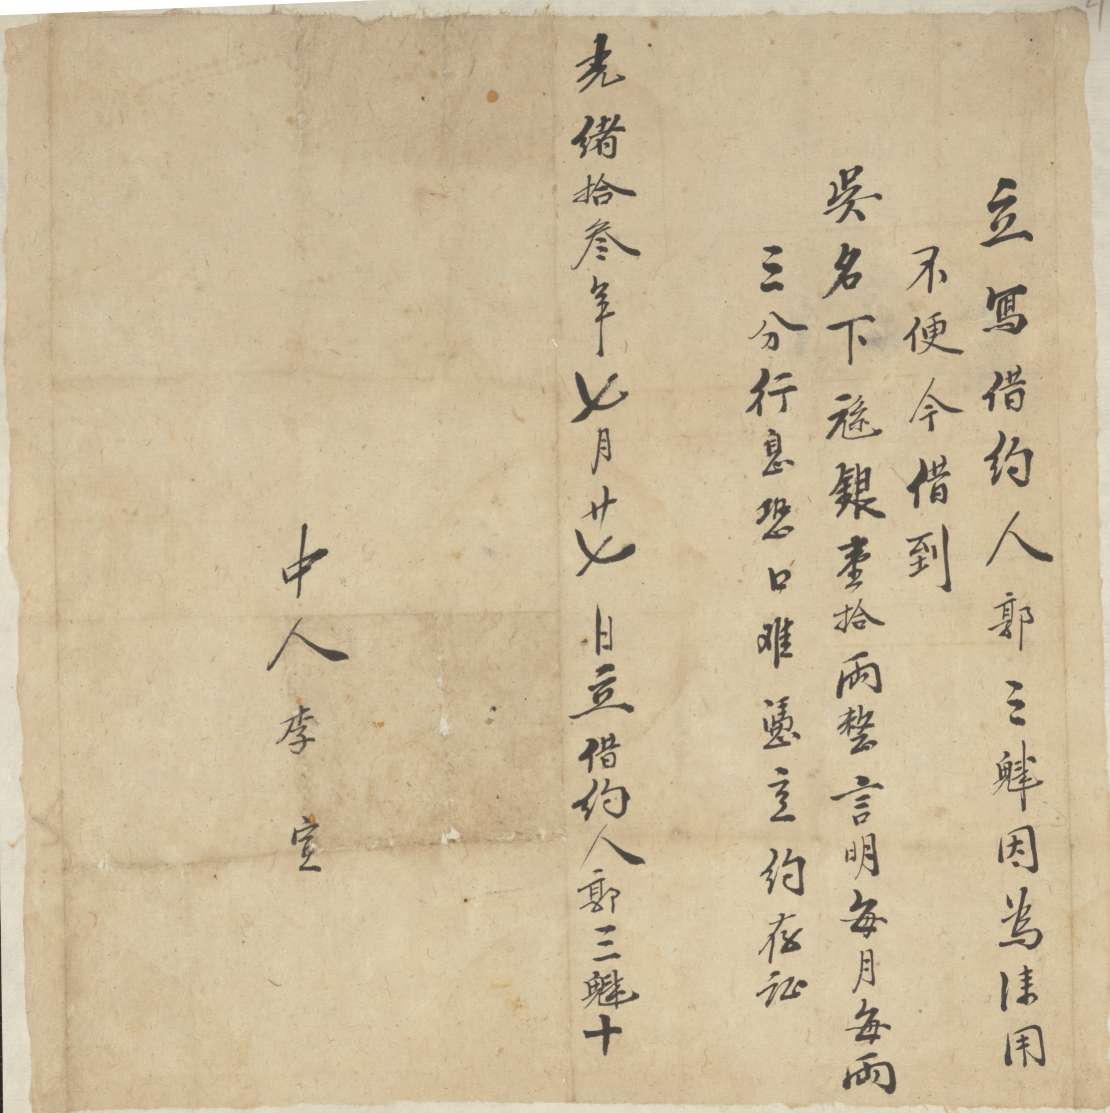 立寫借約人郭三魁因為使用
不便今借到
吳名下銀壹拾兩整言明每月每兩
三分行息恐口难憑立約存証
光緒拾叁年七月廿七日立借約人郭三魁十
中人李宣